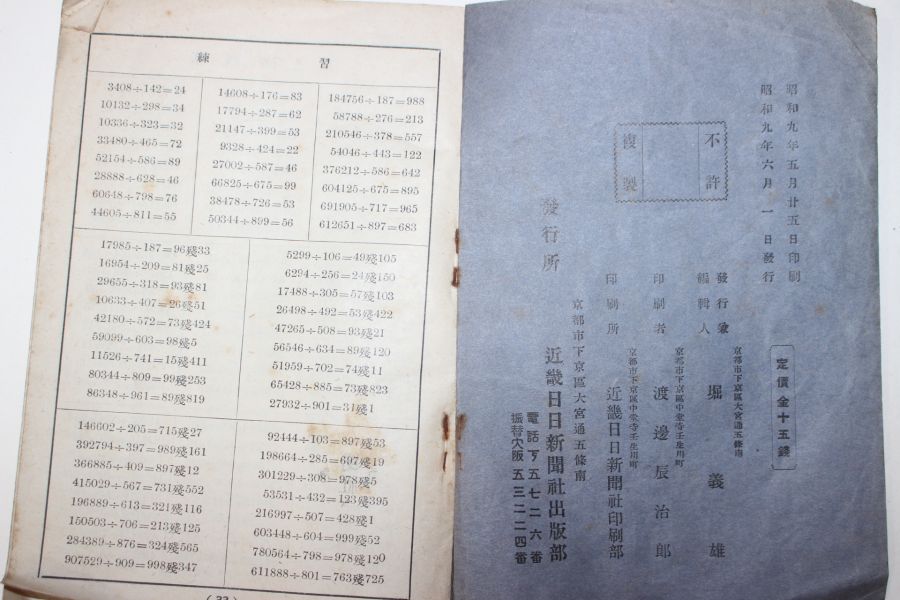 練習
3408÷142=24 14608÷176=83 184756÷187=988
10132÷298=34 17794÷287=62 58788÷276=213
10336÷323=32 21147÷399=53 210546÷378=557
33480÷465=72 9328÷424=22 54046÷443=122
52154÷586=89 27002÷587=46 376212÷586=642
28888÷628=46 66825÷675=99 604125÷675=895
60648÷798=76 38478÷726=53 691905÷717=965
44605÷811=55 50344÷899=56 612651÷897=683
17985÷187=96殘33 5299÷106=49殘105
16954÷209=81殘25 6294÷256=24殘150
29655÷318=93殘81 17488÷305=57殘103
10633÷407=26殘51 26498÷492=53殘422
42180÷572=73殘424 47265÷508=93殘21
59099÷603=98殘5 56546÷634=89殘120
11526÷741=15殘411 51959÷702=74殘11
80344÷809=99殘253 65428÷885=73殘823
86348÷961=89殘819 27932÷901=31殘1
146602÷205=715殘27 92444÷103=897殘53
392794÷397=989殘161 198664÷285=697殘19
366885÷409=897殘12 301229÷308=978殘5
415029÷567=731殘552 53531÷432=123殘395
196889÷613=321殘116 216997÷507=428殘1
150503÷706=213殘125 603448÷604=999殘52
284389÷876=324殘565 780564÷798=978殘120
907529÷909=998殘347 611888÷801=763殘725
昭和九年五月廿五日印刷
昭和九年六月一日發行
定價金十五錢
不許
複製
京都市下京區大宮通五條南
發行兼
編輯人
堀義雄
京都市下京區中堂寺壬生川町
印刷者
渡邊辰治郎
京都市下京區中堂寺壬生川町
印刷所
近畿日日新聞社印刷部
京都市下京區大宮通五條南
發行所
近畿日日新聞社出版部
電話下五七二六番
振替大阪五三二二四番